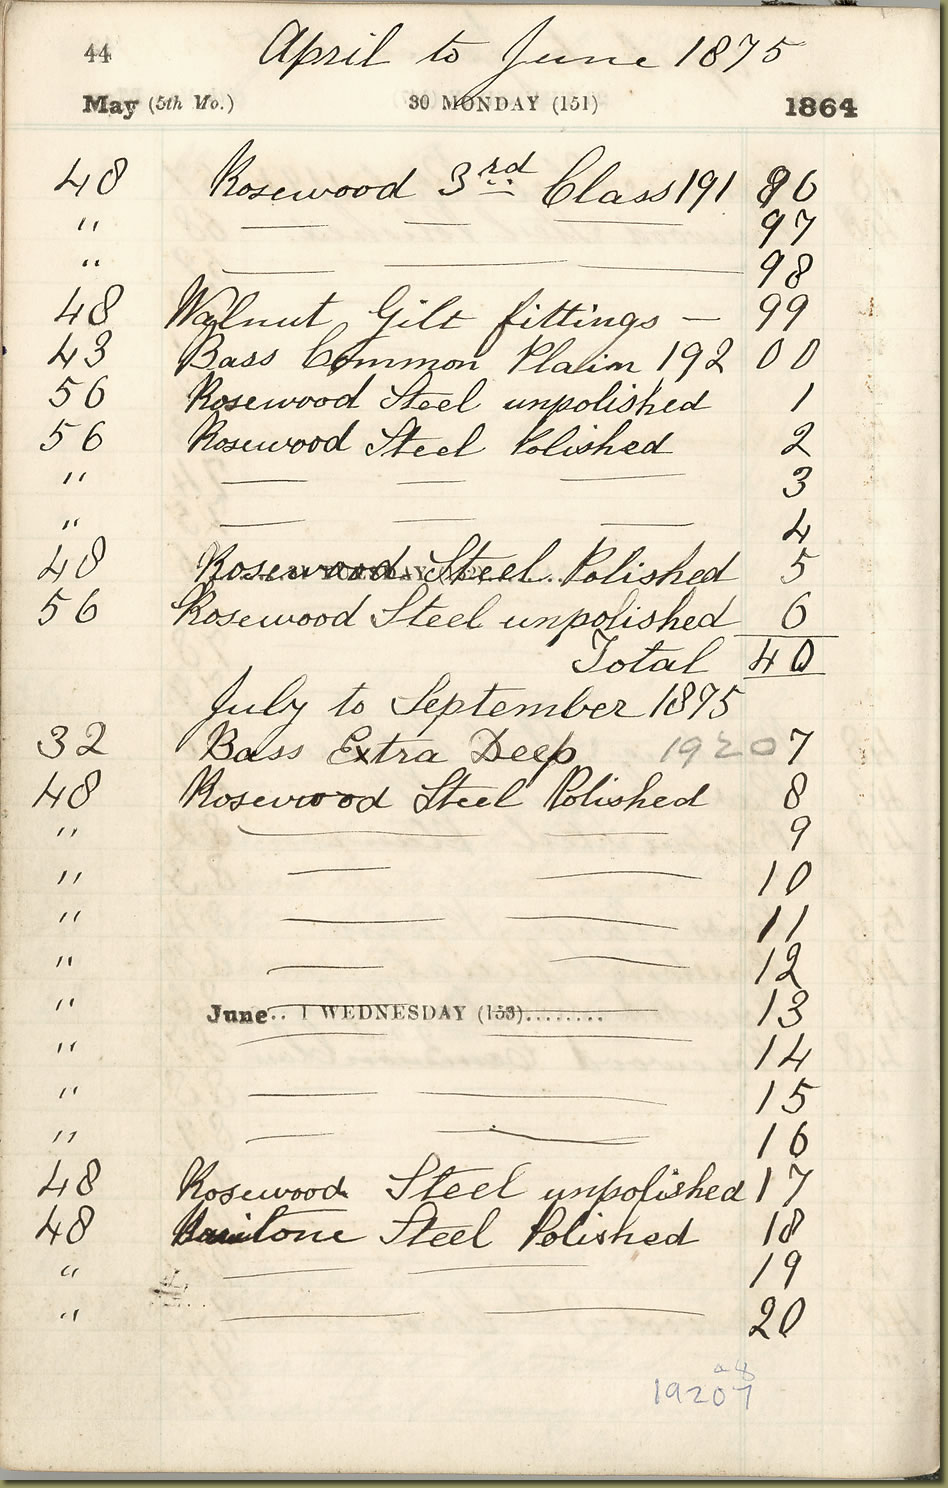 44 April to June 1875
May (5th Mo.) 30 MONDAY (151) 1864
48 Rosewood 3rd Class 191 96
" — — — 97
" — — — 98
48 Walnut Gilt fittings — 99
43 Bass Common Plain 192 00
56 Rosewood Steel unpolished 1
56 Rosewood Steel Polished 2
" — — — 3
" — — — 4
48 Rosewood Steel Polished 5
56 Rosewood Steel unpolished 6
Total 40
July to September 1875
32 Bass Extra Deep 19207
48 Rosewood Steel Polished 8
" — — 9
" — — 10
" — — 11
" — — 12
" — — 13
June.. 1 WEDNESDAY (153)........
" — — 14
" — — 15
" — — 16
48 Rosewood Steel unpolished 17
48 Baritone Steel Polished 18
" — — 19
" — — 20
19207